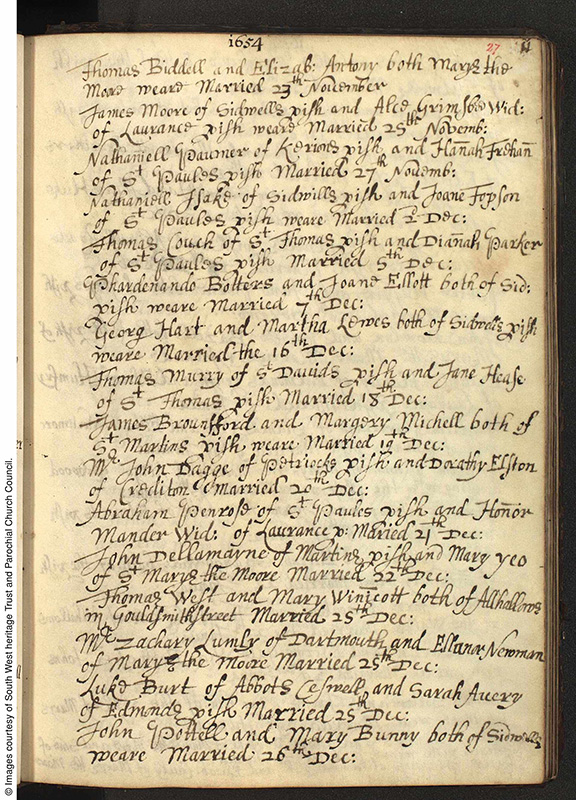 1654
27
11
Thomas Biddell and Elizab: Antony both Marys the
More weare Married 23th November
James Moore of Sidwells pish and Alce Grimsbee Wid:
of Laurance pish weare Married 25th Novemb:
Nathaniell Paumer of Kerions pish and Hanah
of St Paules pish Married 27th Novemb:
Nathaniell Isake of Sidwills pish and Joane Fopson
of St Paules pish weare Married 2 Dec:
Thomas Couch of St Thomas pish and Dianah Parker
of St Paules pish Married 5th Dec:
Phardenando Bolters and Joane Ellott both of Sid:
pish weare Married 7th Dec:
Georg Hart and Martha Lewes both of Sidwells pish
weare Married the 16th Dec:
Thomas Murry of St Dauids pish and Jane Hease
of St Thomas pish Married 18th Dec:
James Brounsford and Margery Michell both of
St Martins pish weare Married 19th Dec:
Mr John Bagge of Petriocks pish and Dorathy Elston
of Crediton Married 20th Dec:
Abraham Penrose of St Paules pish and Honor
Mander Wid: of Laurance p: Maried 21th Dec:
John Dellamayne of Martins pish and Mary Yeo
of St Marys the Moore Married 22th Dec:
Thomas West and Mary Winicott both of Allhallows
in Gouldsmithstreet Married 25th Dec:
Mr Zachary Lumly of Dartmouth and Ellianor Newman
of Marys the Moore Married 25th Dec:
Luke Burt of Abbots Ceswell and Sarah Avery
of Edmonds pish Married 25th Dec:
John Pottell and Mary Bunny both of Sidwells
weare Married 26th Dec:
© Images courtesy of South West heritage Trust and Parochial Church Council.